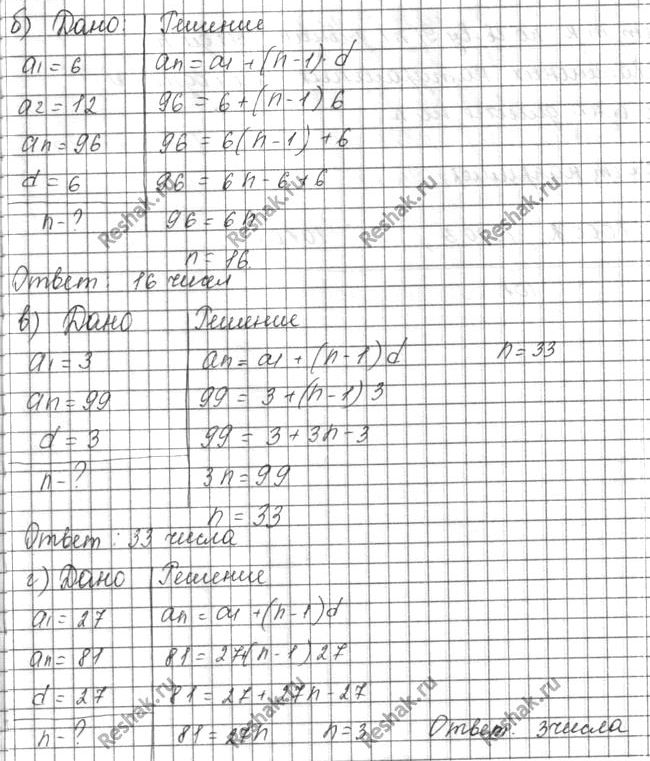 б) Дано: Решение
a1 = 6 an = a1 + (n-1)·d
a2 = 12 96 = 6 + (n-1) 6
an = 96 96 = 6(n-1) + 6
d = 6 96 = 6n - 6 + 6
n - ? 96 = 6n
n = 16
Ответ: 16 чисел
в) Дано Решение
a1 = 3 an = a1 + (n-1)d n = 33
an = 99 99 = 3 + (n-1) 3
d = 3 99 = 3 + 3n - 3
n - ? 3n = 99
n = 33
Ответ: 33 числа
г) Дано Решение
a1 = 27 an = a1 + (n-1)d
an = 81 81 = 27+(n-1) 27
d = 27 81 = 27 + 27n - 27
n - ? 81 = 27n n = 3 Ответ: 3 числа
Reshak.ru
Reshak.ru
Reshak.ru
Reshak.ru
Reshak.ru
Reshak.ru